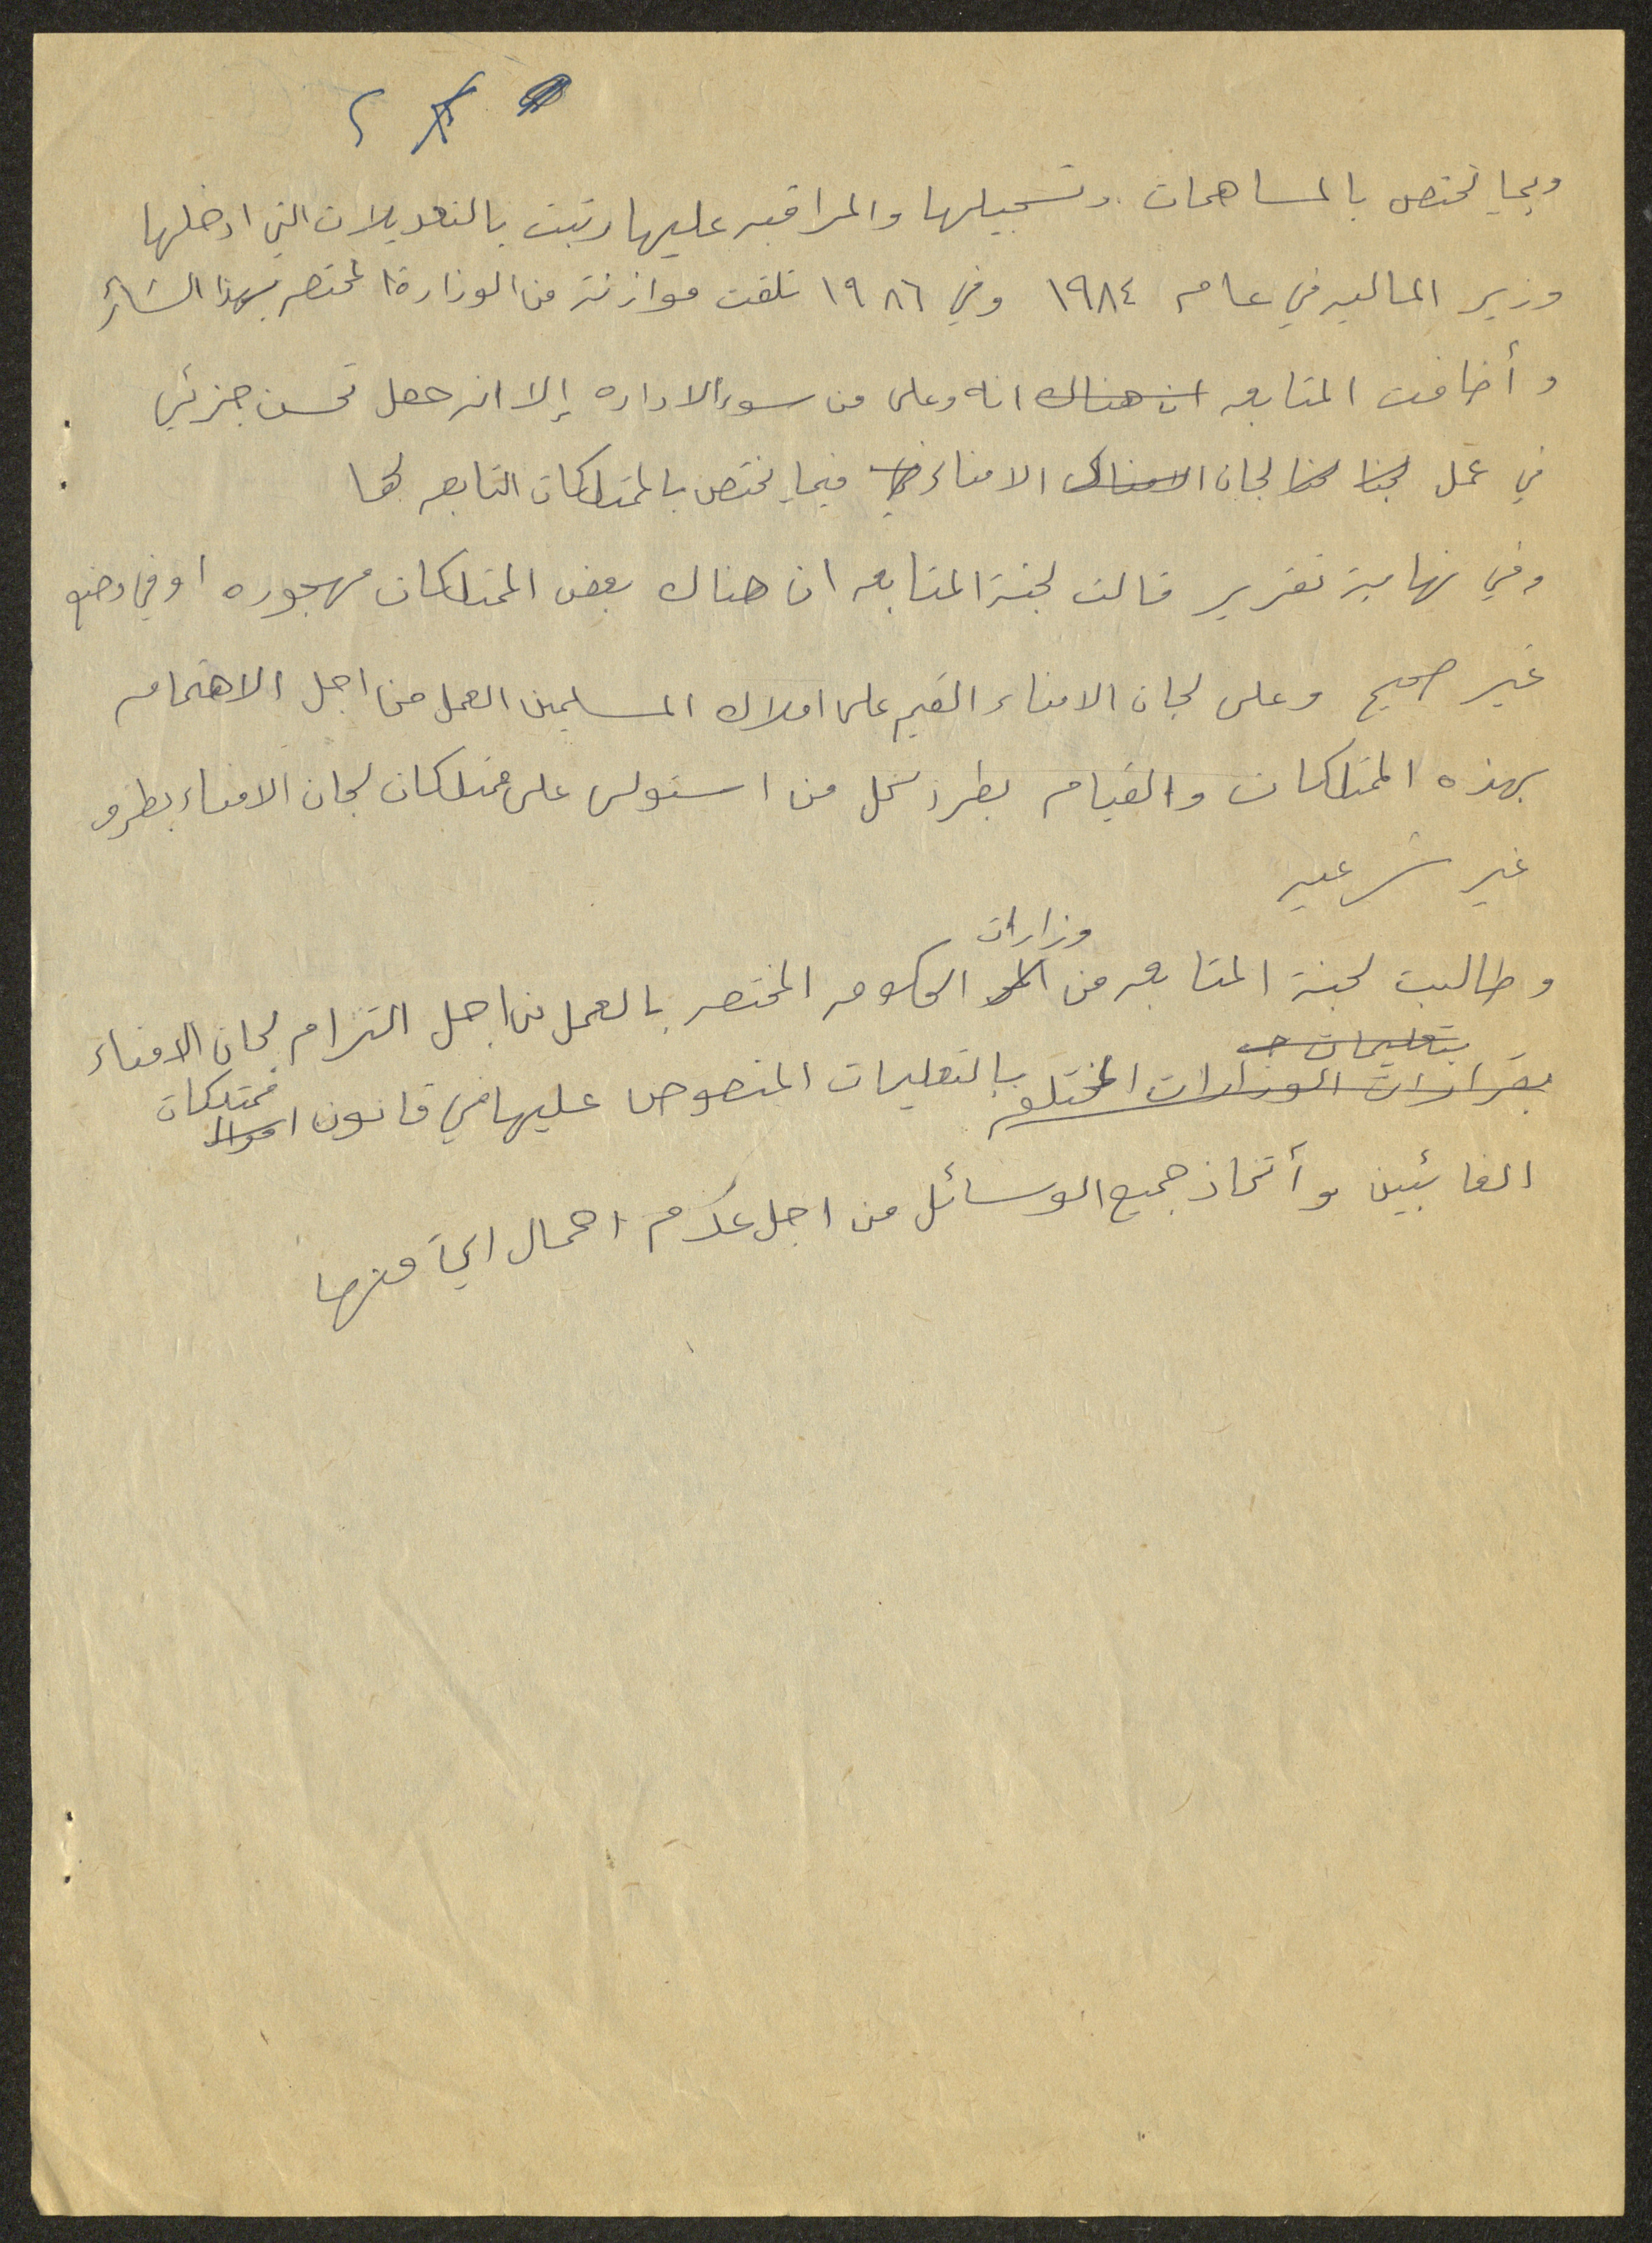 ٢
وبما يختص بالمساهمات وتسجيلها والمراقبه عليها رتبت بالتعديلات التي ادخلها
وزير الماليه في عام ١٩٨٤ وفي ١٩٨٦ تلقت موازنة من الوزارة المختصه بهذا الشأن
وأضافت المتابعه ان هناك انه وعلى من سوء الاداره إلا انه حصل تحسن جزئي
في عمل لجنا لجان الامناء فيما يختص بالممتلكات التابعه لها
وفي نهاية تقرير قالت لجنة المتابعه ان هناك بعض الممتلكات مهجوره او في وضع
غير صحيح وعلى لجان الامناء القيم على املاك المسلمين العمل من اجل الاهتمام
بهذه الممتلكات والقيام بطرد كل من استولى على ممتلكات لجان الامناء بطرق
غير شرعيه
وزارات
وطالبت لجنة المتابعه من الحكومه المختصه بالعمل من اجل التزام لجان الامناء
بتعليمات
بقرارات الوزارات المختلفه بالتعليمات المنصوص عليها في قانون اموال ممتلكات
الغائبين وأتخاذ جميع الوسائل من اجل عدم اهمال اياً منها